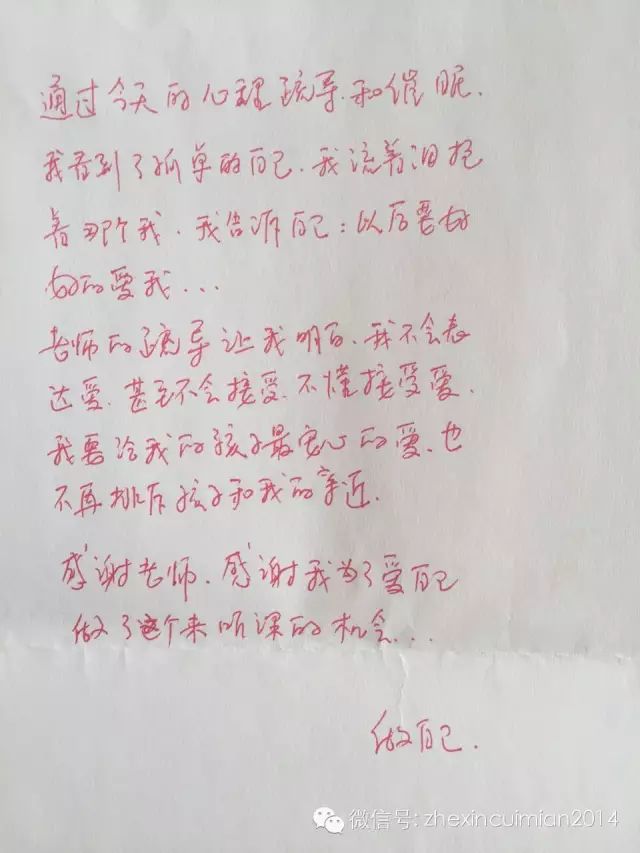 通过今天的心理疏导.和催眠.
我看到了孤单的自己.我流着泪抱
着那个我.我告诉自己:以后要好
好的爱我...
老师的疏导让我明白.我不会表
达爱.甚至不会接受.不懂接受爱.
我要给我的孩子最安心的爱.也
不再排斥孩子和我的亲近.
感谢老师.感谢我为了爱自己
做了这个来听课的机会...
做自己.
微信号: zhexincuimian2014